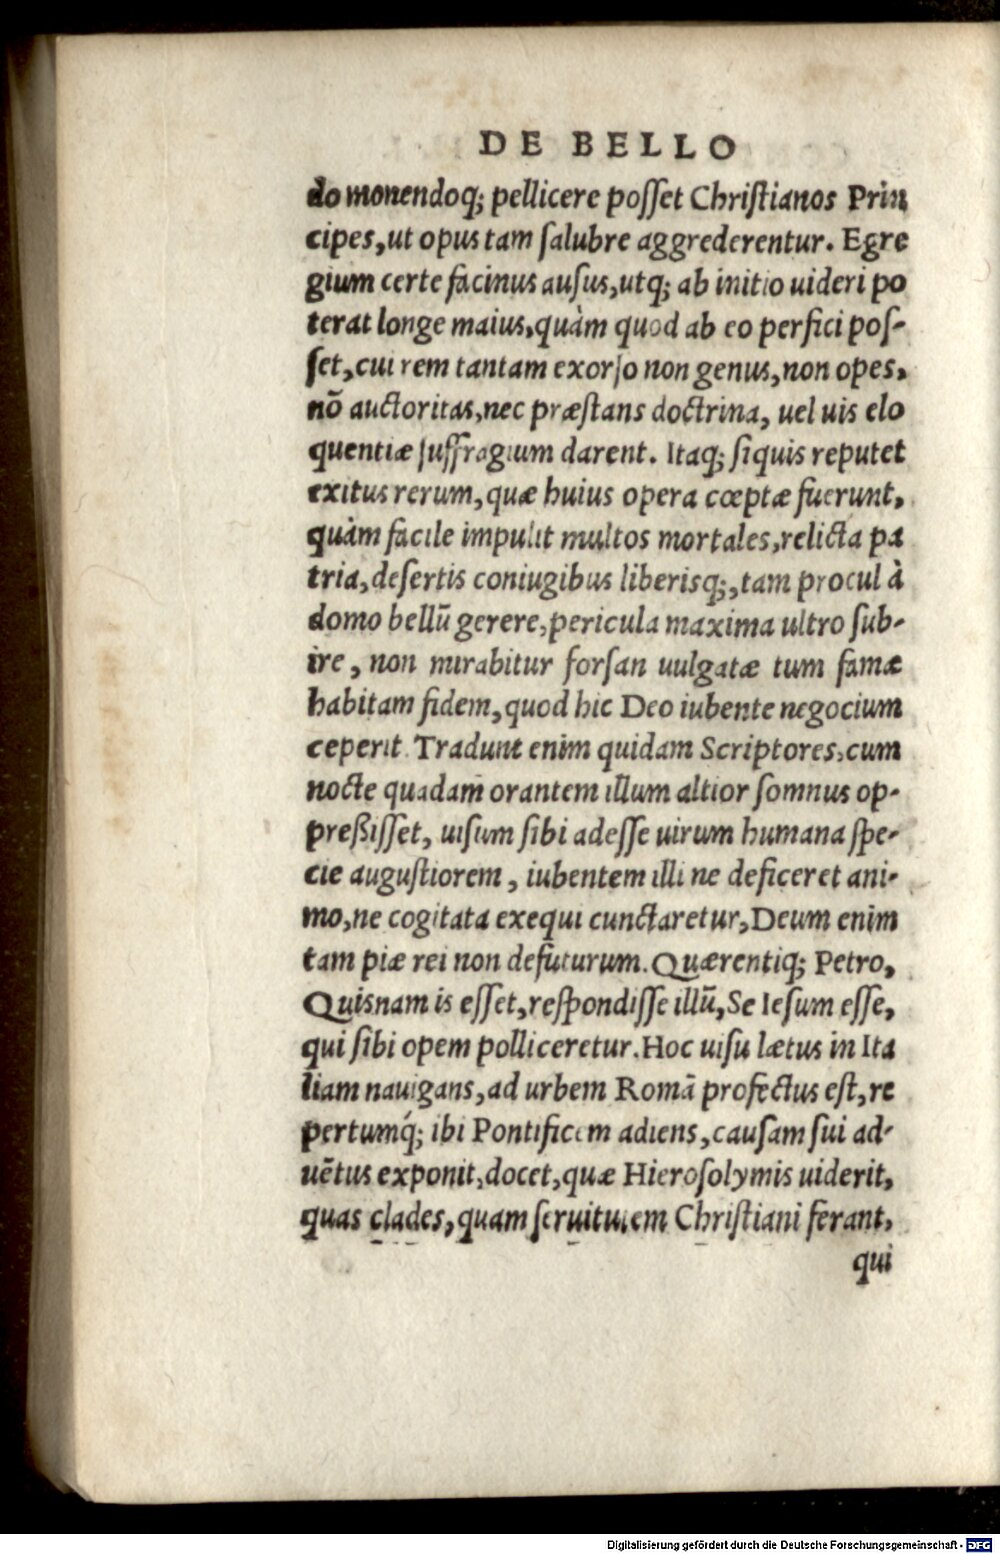 DE BELLO
do monendoq; pellicere posset Christianos Prin
cipes, ut opus tam salubre aggrederentur. Egre
gium certe facinus ausus, utq; ab initio uideri po
terat longe maius, quàm quod ab eo perfici pos-
set, cui rem tantam exorso non genus, non opes,
nō auctoritas, nec præstans doctrina, uel uis elo
quentiæ suffragium darent. Itaq; siquis reputet
exitus rerum, quæ huius opera cœptæ fuerunt,
quàm facile impulit multos mortales, relicta pa
tria, desertis coniugibus liberisq;, tam procul à
domo bellū gerere, pericula maxima ultro sub-
ire, non mirabitur forsan uulgatæ tum famæ
habitam fidem, quod hic Deo iubente negocium
ceperit. Tradunt enim quidam Scriptores, cum
nocte quadam orantem illum altior somnus op-
preßisset, uisum sibi adesse uirum humana spe-
cie augustiorem, iubentem illi ne deficeret ani-
mo, ne cogitata exequi cunctaretur, Deum enim
tam piæ rei non defuturum. Quærentiq; Petro,
Quisnam is esset, respondisse illū, Se Iesum esse,
qui sibi opem polliceretur. Hoc uisu lætus in Ita
liam nauigans, ad urbem Romā profectus est, re
pertumq́; ibi Pontificem adiens, causam sui ad-
uētus exponit, docet, quæ Hierosolymis uiderit,
quas clades, quam seruitutem Christiani ferant,
qui
Digitalisierung gefördert durch die Deutsche Forschungsgemeinschaft - DFG